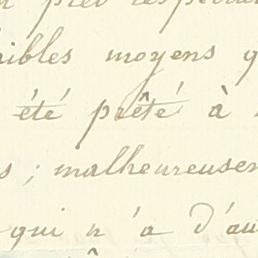 aibles moyens q
été prêté à
s ; malheureusem
qui n'a d'au